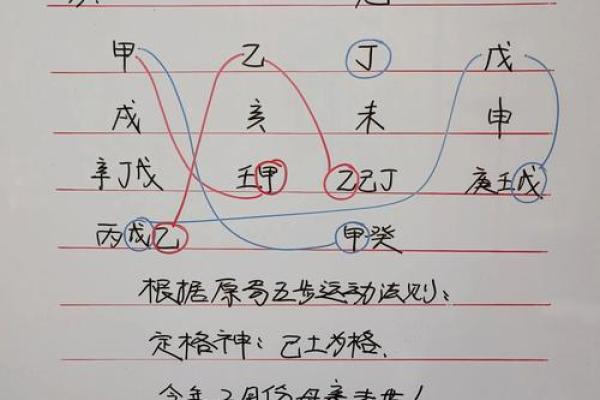 甲 乙 丁 戊
戌 亥 未 申
辛丁戊 壬甲 乙己丁 庚壬戊
丙戊乙 甲癸
根据原局五步运动法则：
定格神：己土为格.
今年2月份母亲去世